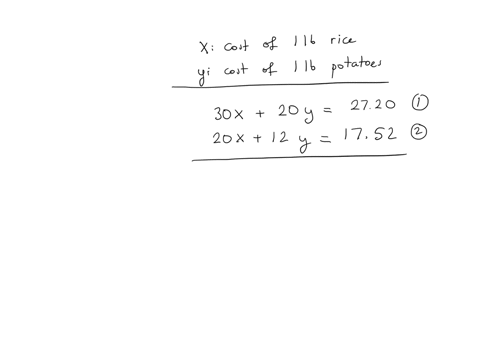 x: cost of 1 lb rice
y: cost of 1 lb potatoes
30x + 20y = 27.20 ①
20x + 12y = 17.52 ②